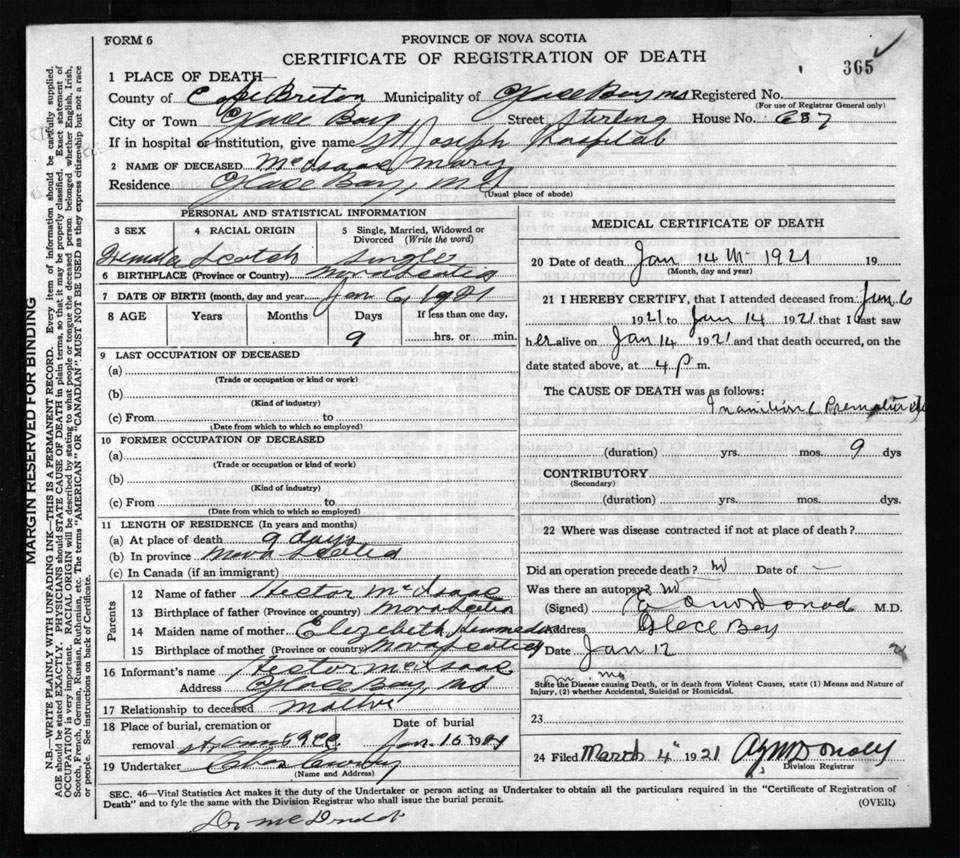 FORM 6
PROVINCE OF NOVA SCOTIA
CERTIFICATE OF REGISTRATION OF DEATH
365
1 PLACE OF DEATH—
County of Cape Breton Municipality of Glace Bay NS Registered No.
(For use of Registrar General only)
City or Town Glace Bay Street Sterling House No. 687
If in hospital or institution, give name St Joseph Hospital
2 NAME OF DECEASED McIsaac Mary
Residence Glace Bay, N.S.
(Usual place of abode)
PERSONAL AND STATISTICAL INFORMATION
3 SEX 4 RACIAL ORIGIN 5 Single, Married, Widowed or Divorced (Write the word)
Female Scotch Single
6 BIRTHPLACE (Province or Country) Nova Scotia
7 DATE OF BIRTH (month, day and year) Jan 6, 1921
8 AGE Years Months Days If less than one day,
9 hrs. or min.
9 LAST OCCUPATION OF DECEASED
(a)
(Trade or occupation or kind or work)
(b)
(Kind of industry)
(c) From to
(Date from which to which so employed)
10 FORMER OCCUPATION OF DECEASED
(a)
(Trade or occupation or kind of work)
(b)
(Kind of industry)
(c) From to
(Date from which to which so employed)
11 LENGTH OF RESIDENCE (In years and months)
(a) At place of death 9 days
(b) In province Nova Scotia
(c) In Canada (if an immigrant)
Parents
12 Name of father Hector McIsaac
13 Birthplace of father (Province or country) Nova Scotia
14 Maiden name of mother Elizabeth
15 Birthplace of mother (Province or country) Nova Scotia
16 Informant's name Hector McIsaac
Address Glace Bay, NS
17 Relationship to deceased
18 Place of burial, cremation or removal St Anns GCC
Date of burial Jan. 15 1921
19 Undertaker Chas
(Name and Address)
MEDICAL CERTIFICATE OF DEATH
20 Date of death Jan 14 th 1921 19
(Month, day and year)
21 I HEREBY CERTIFY, that I attended deceased from Jan 6
1921 to Jan 14 1921 that I last saw
h er alive on Jan 14 1921 and that death occurred, on the
date stated above, at 4 P m.
The CAUSE OF DEATH was as follows:
Inanition
(duration) yrs. mos. 9 dys
CONTRIBUTORY
(Secondary)
(duration) yrs. mos. dys.
22 Where was disease contracted if not at place of death?
Did an operation precede death? No Date of —
Was there an autopsy? No
(Signed) M.D.
Address Glace Bay
Date Jan 12
State the Disease causing Death, or in death from Violent Causes, state (1) Means and Nature of
Injury, (2) whether Accidental, Suicidal or Homicidal.
23
24 Filed March 4th 1921
Division Registrar
SEC. 46—Vital Statistics Act makes it the duty of the Undertaker or person acting as Undertaker to obtain all the particulars required in the "Certificate of Registration of
Death" and to fyle the same with the Division Registrar who shall issue the burial permit.
(OVER)
Dr
MARGIN RESERVED FOR BINDING
N.B.—WRITE PLAINLY WITH UNFADING INK—THIS IS A PERMANENT RECORD. Every item of information should be carefully supplied.
AGE should be stated EXACTLY. PHYSICIANS should STATE CAUSE OF DEATH in plain terms, so that it may be properly classified. Exact statement of
OCCUPATION is very important. RACIAL ORIGIN will be described by stating to what people or tongue the deceased person belonged whether English, Irish,
Scotch, French, German, Russian, Ruthenian, etc. The terms "AMERICAN" or "CANADIAN" MUST NOT BE USED as they express citizenship but not a race
or people. See instructions on back of Certificate.